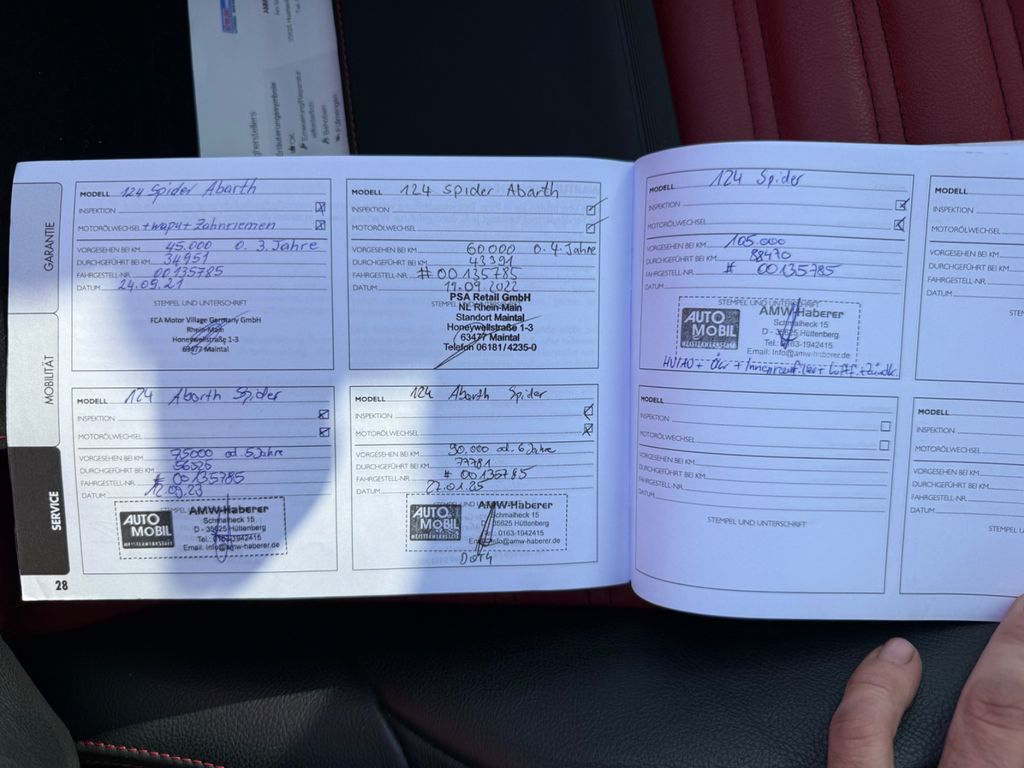 AMW
erstellers
Erläuterungssymbole
OK
Erneuerung/Reparatur
erforderlich
Behoben
GARANTIE
MOBILITÄT
SERVICE
28
MODELL 124 Spider Abarth
INSPEKTION
MOTORÖLWECHSEL + wapu + Zahnriemen
VORGESEHEN BEI KM 45.000 o. 3. Jahre
DURCHGEFÜHRT BEI KM 34951
FAHRGESTELL-NR. 00135785
DATUM 24.09.21
STEMPEL UND UNTERSCHRIFT
FCA Motor Village Germany GmbH
Rhein-Main
Honeywellstraße 1-3
63477 Maintal
MODELL 124 Spider Abarth
INSPEKTION
MOTORÖLWECHSEL
VORGESEHEN BEI KM 60.000 o. 4. Jahre
DURCHGEFÜHRT BEI KM 43391
FAHRGESTELL-NR. # 00135785
DATUM 19.09.2022
PSA Retail GmbH
NL Rhein-Main
Standort Maintal
Honeywellstraße 1-3
63477 Maintal
Telefon 06181/4235-0
MODELL 124 Abarth Spider
INSPEKTION
MOTORÖLWECHSEL
VORGESEHEN BEI KM 75000 od. 5 Jahre
DURCHGEFÜHRT BEI KM 56326
FAHRGESTELL-NR. # 00135785
DATUM 12.09.23
AUTO MOBIL
MEISTERWERKSTATT
AMW-Haberer
Schmalheck 15
D - 35625 Hüttenberg
Tel. 0163-1942415
Email: info@amw-haberer.de
MODELL 124 Abarth Spider
INSPEKTION
MOTORÖLWECHSEL
VORGESEHEN BEI KM 90.000 od. 6 Jahre
DURCHGEFÜHRT BEI KM 77781
FAHRGESTELL-NR. # 00135785
DATUM 27.01.25
AUTO MOBIL
MEISTERWERKSTATT
AMW-Haberer
Schmalheck 15
D - 35625 Hüttenberg
Tel. 0163-1942415
Email: info@amw-haberer.de
DOT4
MODELL 124 Spider
INSPEKTION
MOTORÖLWECHSEL
VORGESEHEN BEI KM 105.000
DURCHGEFÜHRT BEI KM 88470
FAHRGESTELL-NR. # 00135785
DATUM
STEMPEL UND UNTERSCHRIFT
AUTO MOBIL
MEISTERWERKSTATT
AMW-Haberer
Schmalheck 15
D - 35625 Hüttenberg
Tel. 0163-1942415
Email: info@amw-haberer.de
MODELL
INSPEKTION
MOTORÖLWECHSEL
VORGESEHEN BEI KM
DURCHGEFÜHRT BEI KM
FAHRGESTELL-NR.
DATUM
STEMPEL UND UNTERSCHRIFT
MODELL
INSPEKTION
MOTORÖLWECHSEL
VORGESEHEN BEI KM
DURCHGEFÜHRT BEI KM
FAHRGESTELL-NR.
DATUM
MODELL
INSPEKTION
MOTORÖLWECHSEL
VORGESEHEN BEI KM
DURCHGEFÜHRT BEI KM
FAHRGESTELL-NR.
DATUM